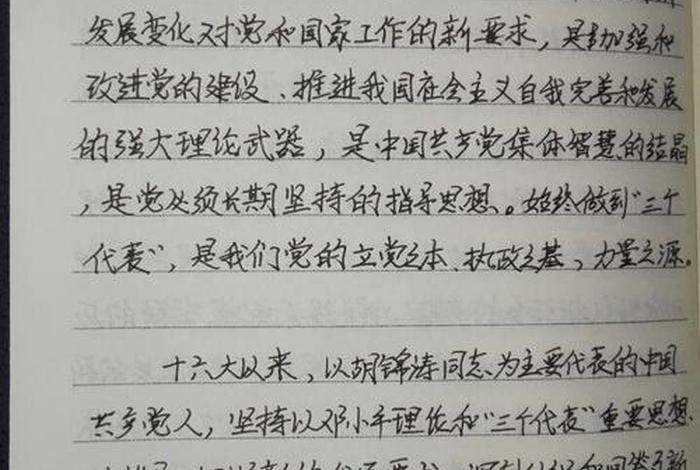 发展变化对党和国家工作的新要求，是加强和
改进党的建设、推进我国社会主义自我完善和发展
的强大理论武器，是中国共产党集体智慧的结晶
，是党必须长期坚持的指导思想。始终做到“三个
代表”，是我们党的立党之本、执政之基，力量之源。
十六大以来，以胡锦涛同志为主要代表的中国
共产党人，坚持以邓小平理论和“三个代表”重要思想